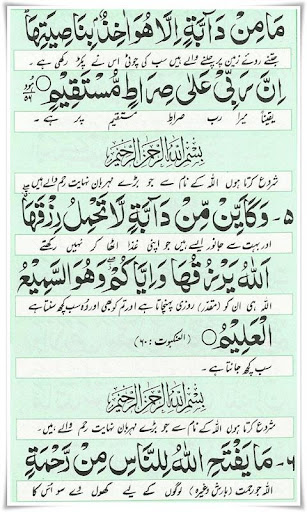 مَا مِنْ دَآبَّةٍ اِلَّا هُوَ اٰخِذٌۢ بِنَاصِيَتِهَا ؕ
جتنے روئے زمین پر چلنے والے ہیں سب کی چوٹی اس نے پکڑ رکھی ہے۔
اِنَّ رَبِّیْ عَلٰی صِرَاطٍ مُّسْتَقِیْمٍ ۝ ہود ۵۶
یقیناً میرا رب صراط مستقیم پر ہے۔
بِسْمِ اللهِ الرَّحْمٰنِ الرَّحِیْمِ
شروع کرتا ہوں اللہ کے نام سے جو بڑے مہربان نہایت رحم والے ہیں۔
۵۔ وَكَاَیِّنْ مِّنْ دَآبَّةٍ لَّا تَحْمِلُ رِزْقَهَا
اور بہت سے جانور ایسے ہیں جو اپنی غذا اٹھا کر نہیں رکھتے
اَللّٰهُ یَرْزُقُهَا وَاِیَّاكُمْ ۖ وَهُوَ السَّمِیْعُ
اللہ ہی ان کو (مقدر) روزی پہنچاتا ہے اور تم کو بھی اور وہ سب کچھ سنتا ہے
الْعَلِیْمُ ۝ (العنکبوت : ۶۰)
سب کچھ جانتا ہے۔
بِسْمِ اللهِ الرَّحْمٰنِ الرَّحِیْمِ
شروع کرتا ہوں اللہ کے نام سے جو بڑے مہربان نہایت رحم والے ہیں۔
۶۔ مَا یَفْتَحِ اللّٰهُ لِلنَّاسِ مِنْ رَّحْمَةٍ
اللہ جو رحمت (بارش وغیرہ) لوگوں کے لیے کھول دے سو اس کا